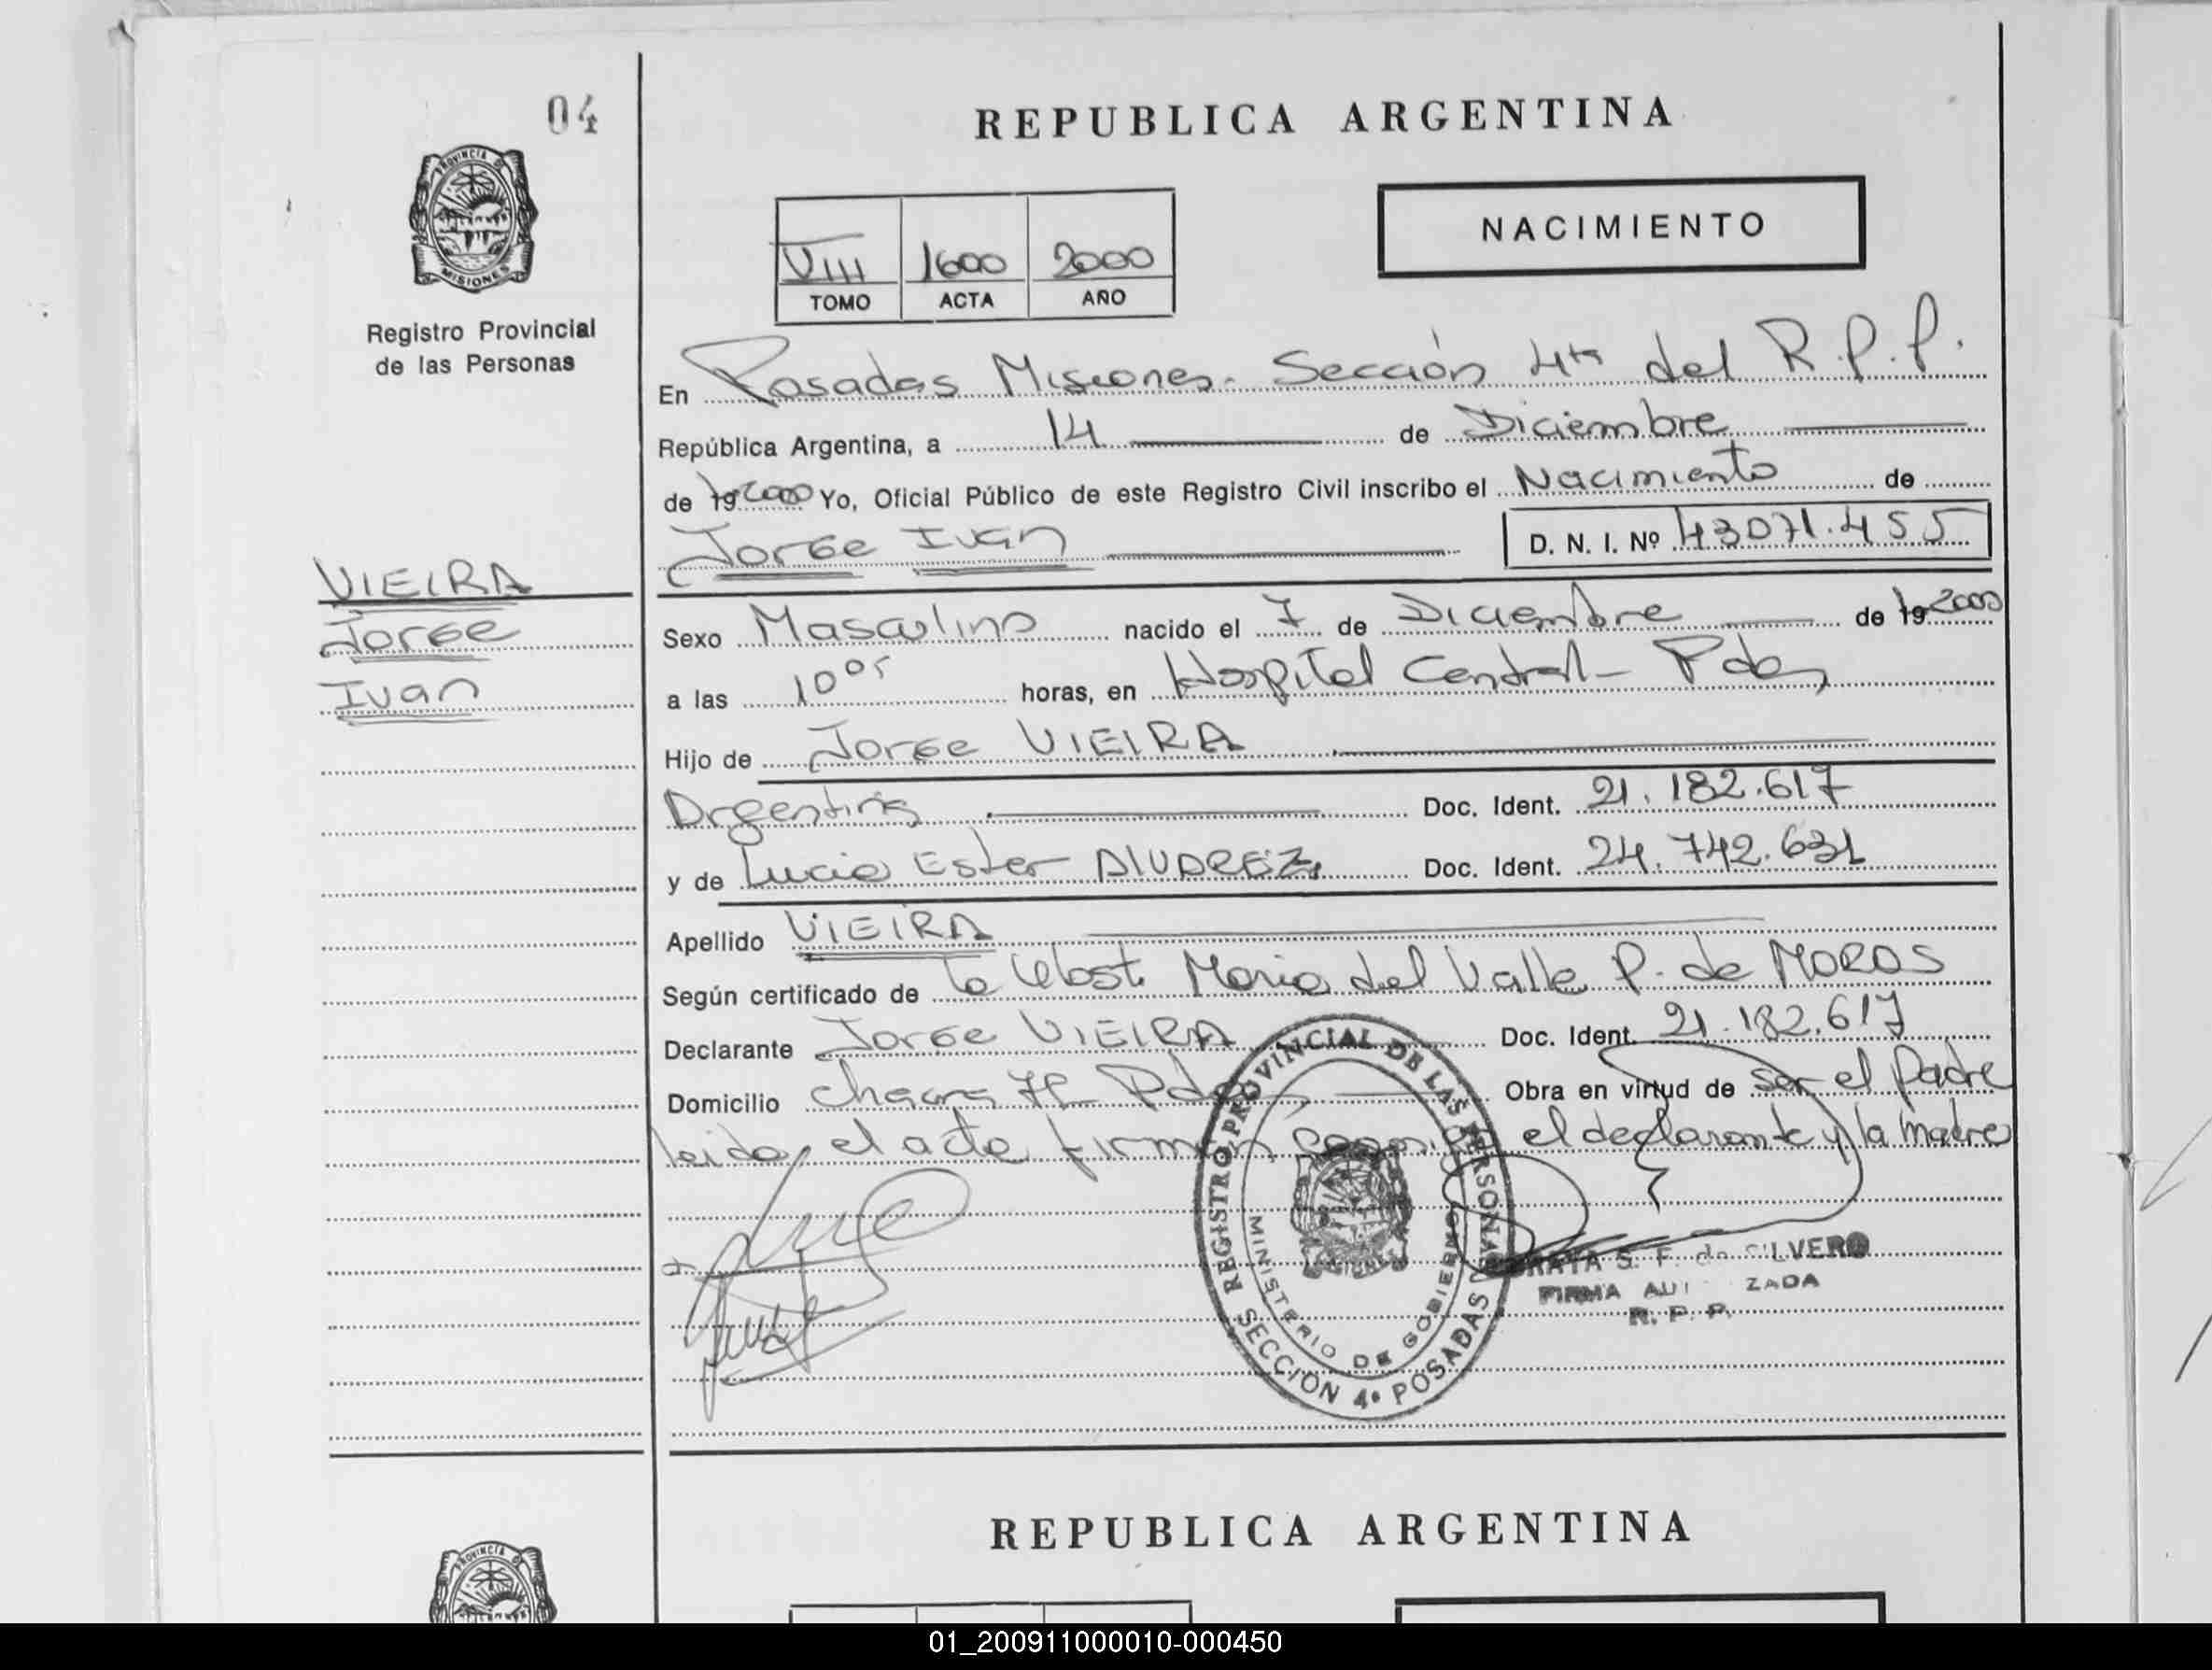 04
REPUBLICA ARGENTINA
PROVINCIA DE
MISIONES
Registro Provincial
de las Personas
VIII 1600 2000
TOMO ACTA AÑO
NACIMIENTO
En Posadas Misiones. Sección 4ta del R.P.P.
República Argentina, a 14 de Diciembre
de 19 2000 Yo, Oficial Público de este Registro Civil inscribo el Nacimiento de
Jorge Ivan D. N. I. Nº 43071.455
VIEIRA
Jorge
Ivan
Sexo Masculino nacido el 7 de Diciembre de 19 2000
a las 10 05 horas, en Hospital Central - Pdas
Hijo de Jorge VIEIRA
Argentina Doc. Ident. 21.182.617
y de Lucia Ester ALVAREZ Doc. Ident. 24.742.631
Apellido VIEIRA
Según certificado de la Obst. Maria del Valle P. de MORAS
Declarante Jorge VIEIRA Doc. Ident. 21.182.617
Domicilio Chacra Pdas Obra en virtud de ser el Padre
leida el acta firman el declarante y la madre
REGISTRO PROVINCIAL DE LAS PERSONAS
MINISTERIO DE GOBIERNO
SECCION 4ª POSADAS
S. F. de SILVERO
FIRMA AUTORIZADA
R. P. P.
REPUBLICA ARGENTINA
PROVINCIA DE
01_200911000010-000450